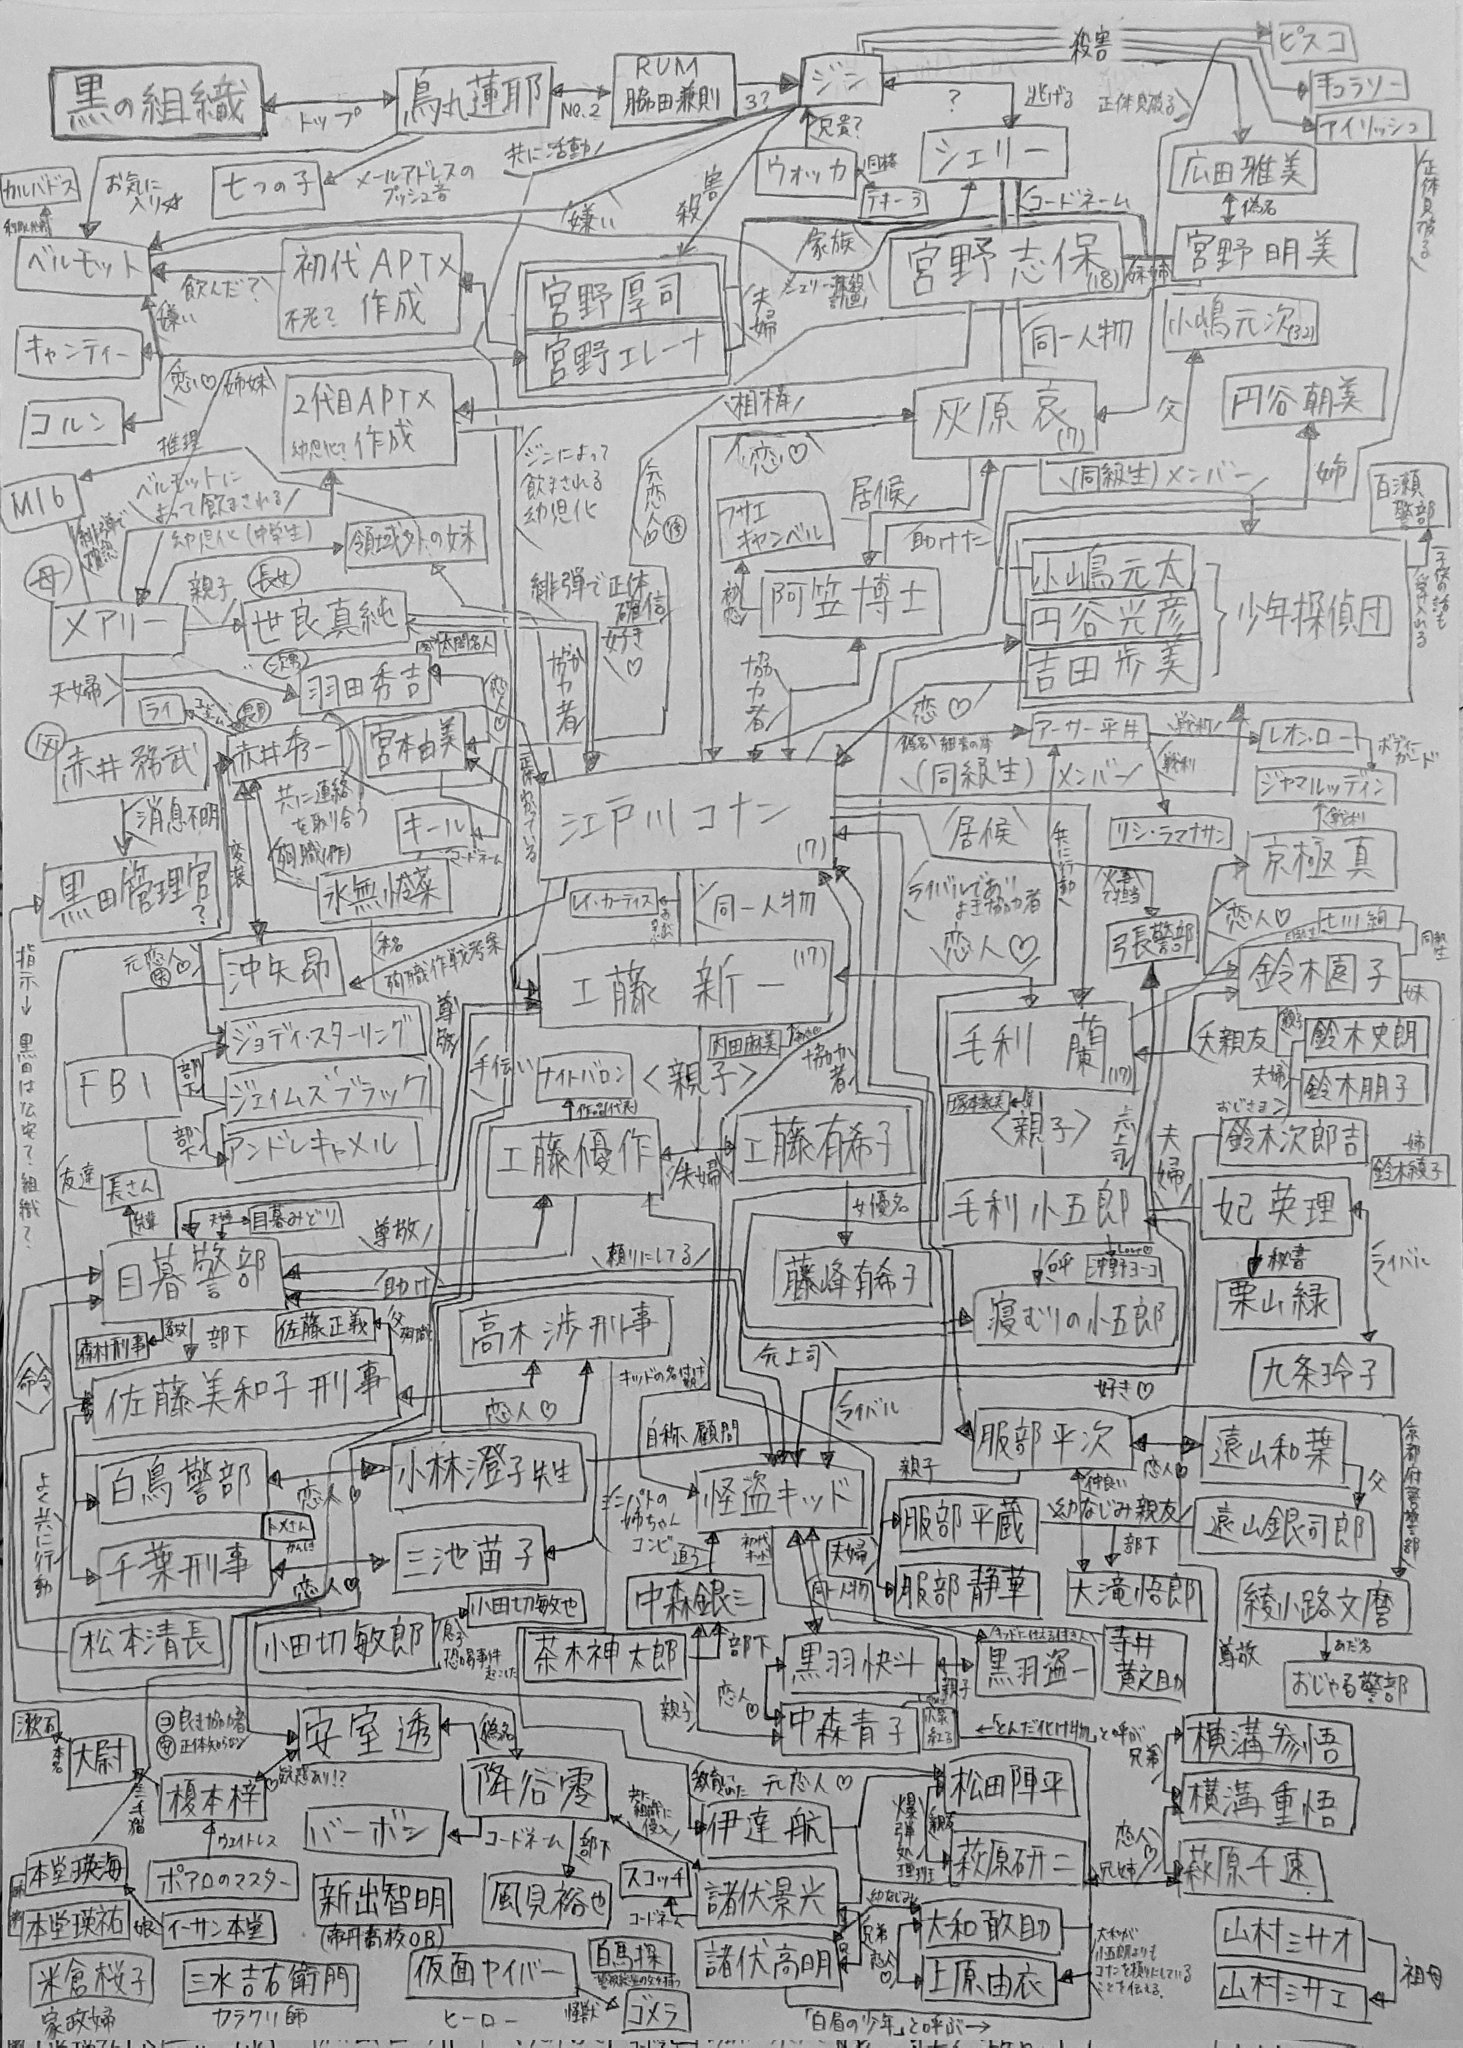 黒の組織
トップ
烏丸蓮耶
No.2
RUM
脇田兼則
3?
ジン
殺害
ピスコ
キュラソー
アイリッシュ
?
逃げる
正体見破る
カルバドス
お気に
入り
七つの子
メールアドレスの
プッシュ音
共に活動
兄貴?
ウォッカ
同格
テキーラ
シェリー
広田雅美
偽名
宮野明美
正体見破る
コードネーム
ベルモット
飲んだ?
嫌い
初代APTX
不老?
作成
嫌い
殺害
宮野厚司
宮野エレーナ
夫婦
家族
宮野志保
(18)
姉妹
キャンティー
コルン
恋♡
姉妹
2代目APTX
幼児化?
作成
同一人物
小嶋元次
父
円谷朝美
姉
相棒
灰原哀
(7)
恋♡
居候
助けた
(同級生)
メンバー
推理
MI6
ベルモットに
よって飲まされる
幼児化(中学生)
ジンによって
飲まされる
幼児化
領域外の妹
フサエ
キャンベル
初恋
阿笠博士
百瀬
警部
小嶋元太
円谷光彦
吉田歩美
少年探偵団
母
メアリー
親子
長女
世良真純
緋弾で正体
確信
好き
♡
協力者
協力者
夫婦
次男
羽田秀吉
太閤名人
恋人♡
ライ
長男
赤井秀一
宮本由美
父
赤井務武
消息不明
黒田管理官
?
共に連絡
を取り合う
殉職(作)
キール
コードネーム
水無怜奈
変装
江戸川コナン
(7)
恋♡
アーサー平井
(同級生)
メンバー
レオン・ロー
ボディー
ガード
ジャマルッディン
リシ・ラマナサン
京極真
恋人♡
居候
ライバルであり
よき協力者
恋人♡
共に行動
弓長警部
レイ・カーティス
同一人物
工藤新一
(17)
元恋人♡
沖矢昴
本名
殉職作戦考案
尊敬
FBI
部下
ジョディ・スターリング
ジェイムズブラック
アンドレキャメル
指示↓
黒田は公安?組織?
手伝い
ナイトバロン
〈親子〉
内田麻美
協力者
工藤優作
夫婦
工藤有希子
女優名
藤峰有希子
毛利蘭
(17)
〈親子〉
大親友
鈴木園子
七川絢
妹
鈴木史朗
夫婦
鈴木朋子
おじさま
鈴木次郎吉
姉
鈴木綾子
毛利小五郎
夫婦
妃英理
秘書
栗山緑
ライバル
九条玲子
沖野ヨーコ
眠りの小五郎
友達
長さん
目暮みどり
目暮警部
尊敬
助け
頼りにしてる
元上司
森村刑事
部下
佐藤正義
父
殉職
命令
佐藤美和子刑事
高木渉刑事
恋人♡
キッドの名付け親
自称、顧問
ライバル
好き♡
服部平次
恋人♡
遠山和葉
父
親子
仲良い
幼なじみ親友
服部平蔵
遠山銀司郎
部下
夫婦
服部静華
大滝悟郎
綾小路文麿
あだ名
おじゃる警部
京都府警警部
白鳥警部
恋人♡
小林澄子先生
トメさん
千葉刑事
恋人♡
三池苗子
よく共に行動
ミニパトの
姉ちゃん
コンビ
怪盗キッド
追う
初代
キッド
同一人物
中森銀三
部下
松本清長
小田切敏郎
小田切敏也
息子
茶木神太郎
黒羽快斗
親子
黒羽盗一
寺井
黄之助
恋人♡
親子
中森青子
尊敬
←「とんだ化け物」と呼ぶ
兄弟
横溝参悟
横溝重悟
恋人♡
萩原千速
漱石
本名
大尉
榎本梓
ウエイトレス
ポアロのマスター
安室透
偽名
降谷零
コードネーム
バーボン
部下
風見裕也
元恋人♡
伊達航
松田陣平
親友
爆弾処理班
萩原研二
スコッチ
コードネーム
諸伏景光
兄弟
諸伏高明
幼なじみ
大和敢助
恋人♡
上原由衣
大和が
小五郎よりも
コナンを頼りにしている
ことを伝える。
「白眉の少年」と呼ぶ→
山村ミサオ
山村ミサエ
祖母
本堂瑛海
本堂瑛祐
娘
イーサン本堂
新出智明
(帝丹高校OB)
米倉桜子
家政婦
三水吉右衛門
カラクリ師
仮面ヤイバー
ヒーロー
怪獣
ゴメラ
白馬探